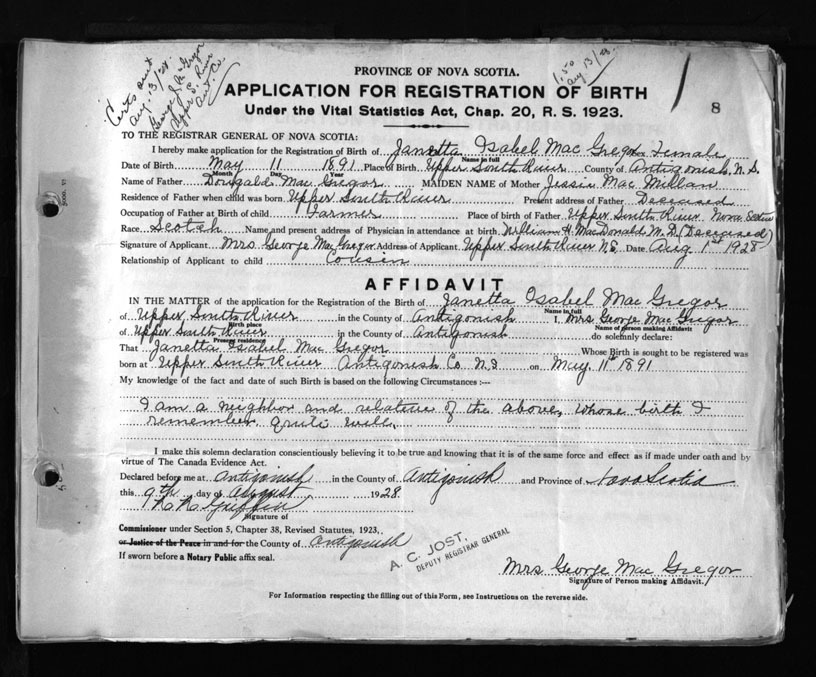 Certs sent
Aug. 13/28.
George J. McGregor
Upper S. River
Ant. Co.
1.50
Aug 13/28.
8
PROVINCE OF NOVA SCOTIA.
APPLICATION FOR REGISTRATION OF BIRTH
Under the Vital Statistics Act, Chap. 20, R. S. 1923.
TO THE REGISTRAR GENERAL OF NOVA SCOTIA:
I hereby make application for the Registration of Birth of Janetta Isabel Mac Gregor Sex Female
Name in full
Date of Birth May 11 1891 Place of Birth Upper South River County of Antigonish N. S.
Month Day Year
Name of Father Dougald Mac Gregor MAIDEN NAME of Mother Jessie Mac Millan
Residence of Father when child was born Upper South River Present address of Father Deceased
Occupation of Father at Birth of child Farmer Place of birth of Father Upper South River Nova Scotia
Race Scotch Name and present address of Physician in attendance at birth William H. MacDonald M.D (Deceased)
Signature of Applicant Mrs George Mac Gregor Address of Applicant Upper South River N.S. Date Aug 1st 1928
Relationship of Applicant to child Cousin
AFFIDAVIT
IN THE MATTER of the application for the Registration of the Birth of Janetta Isabel Mac Gregor
Name in full
of Upper South River in the County of Antigonish I, Mrs George Mac Gregor
Birth place Name of person making Affidavit
of Upper South River in the County of Antigonish do solemnly declare:
Present residence
That Janetta Isabel Mac Gregor Whose Birth is sought to be registered was
born at Upper South River Antigonish Co N.S on May 11st 1891
My knowledge of the fact and date of such Birth is based on the following Circumstances :—
I am a neighbor and relative of the above, whose birth I
remember quite well.
I make this solemn declaration conscientiously believing it to be true and knowing that it is of the same force and effect as if made under oath and by
virtue of The Canada Evidence Act.
Declared before me at Antigonish in the County of Antigonish and Province of Nova Scotia
this 9th day of August 1928
Griffin
Signature of
Commissioner under Section 5, Chapter 38, Revised Statutes, 1923,
or Justice of the Peace in and for the County of Antigonish
If sworn before a Notary Public affix seal.
A. C. JOST,
DEPUTY REGISTRAR GENERAL
Mrs George Mac Gregor
Signature of Person making Affidavit.
For Information respecting the filling out of this Form, see Instructions on the reverse side.